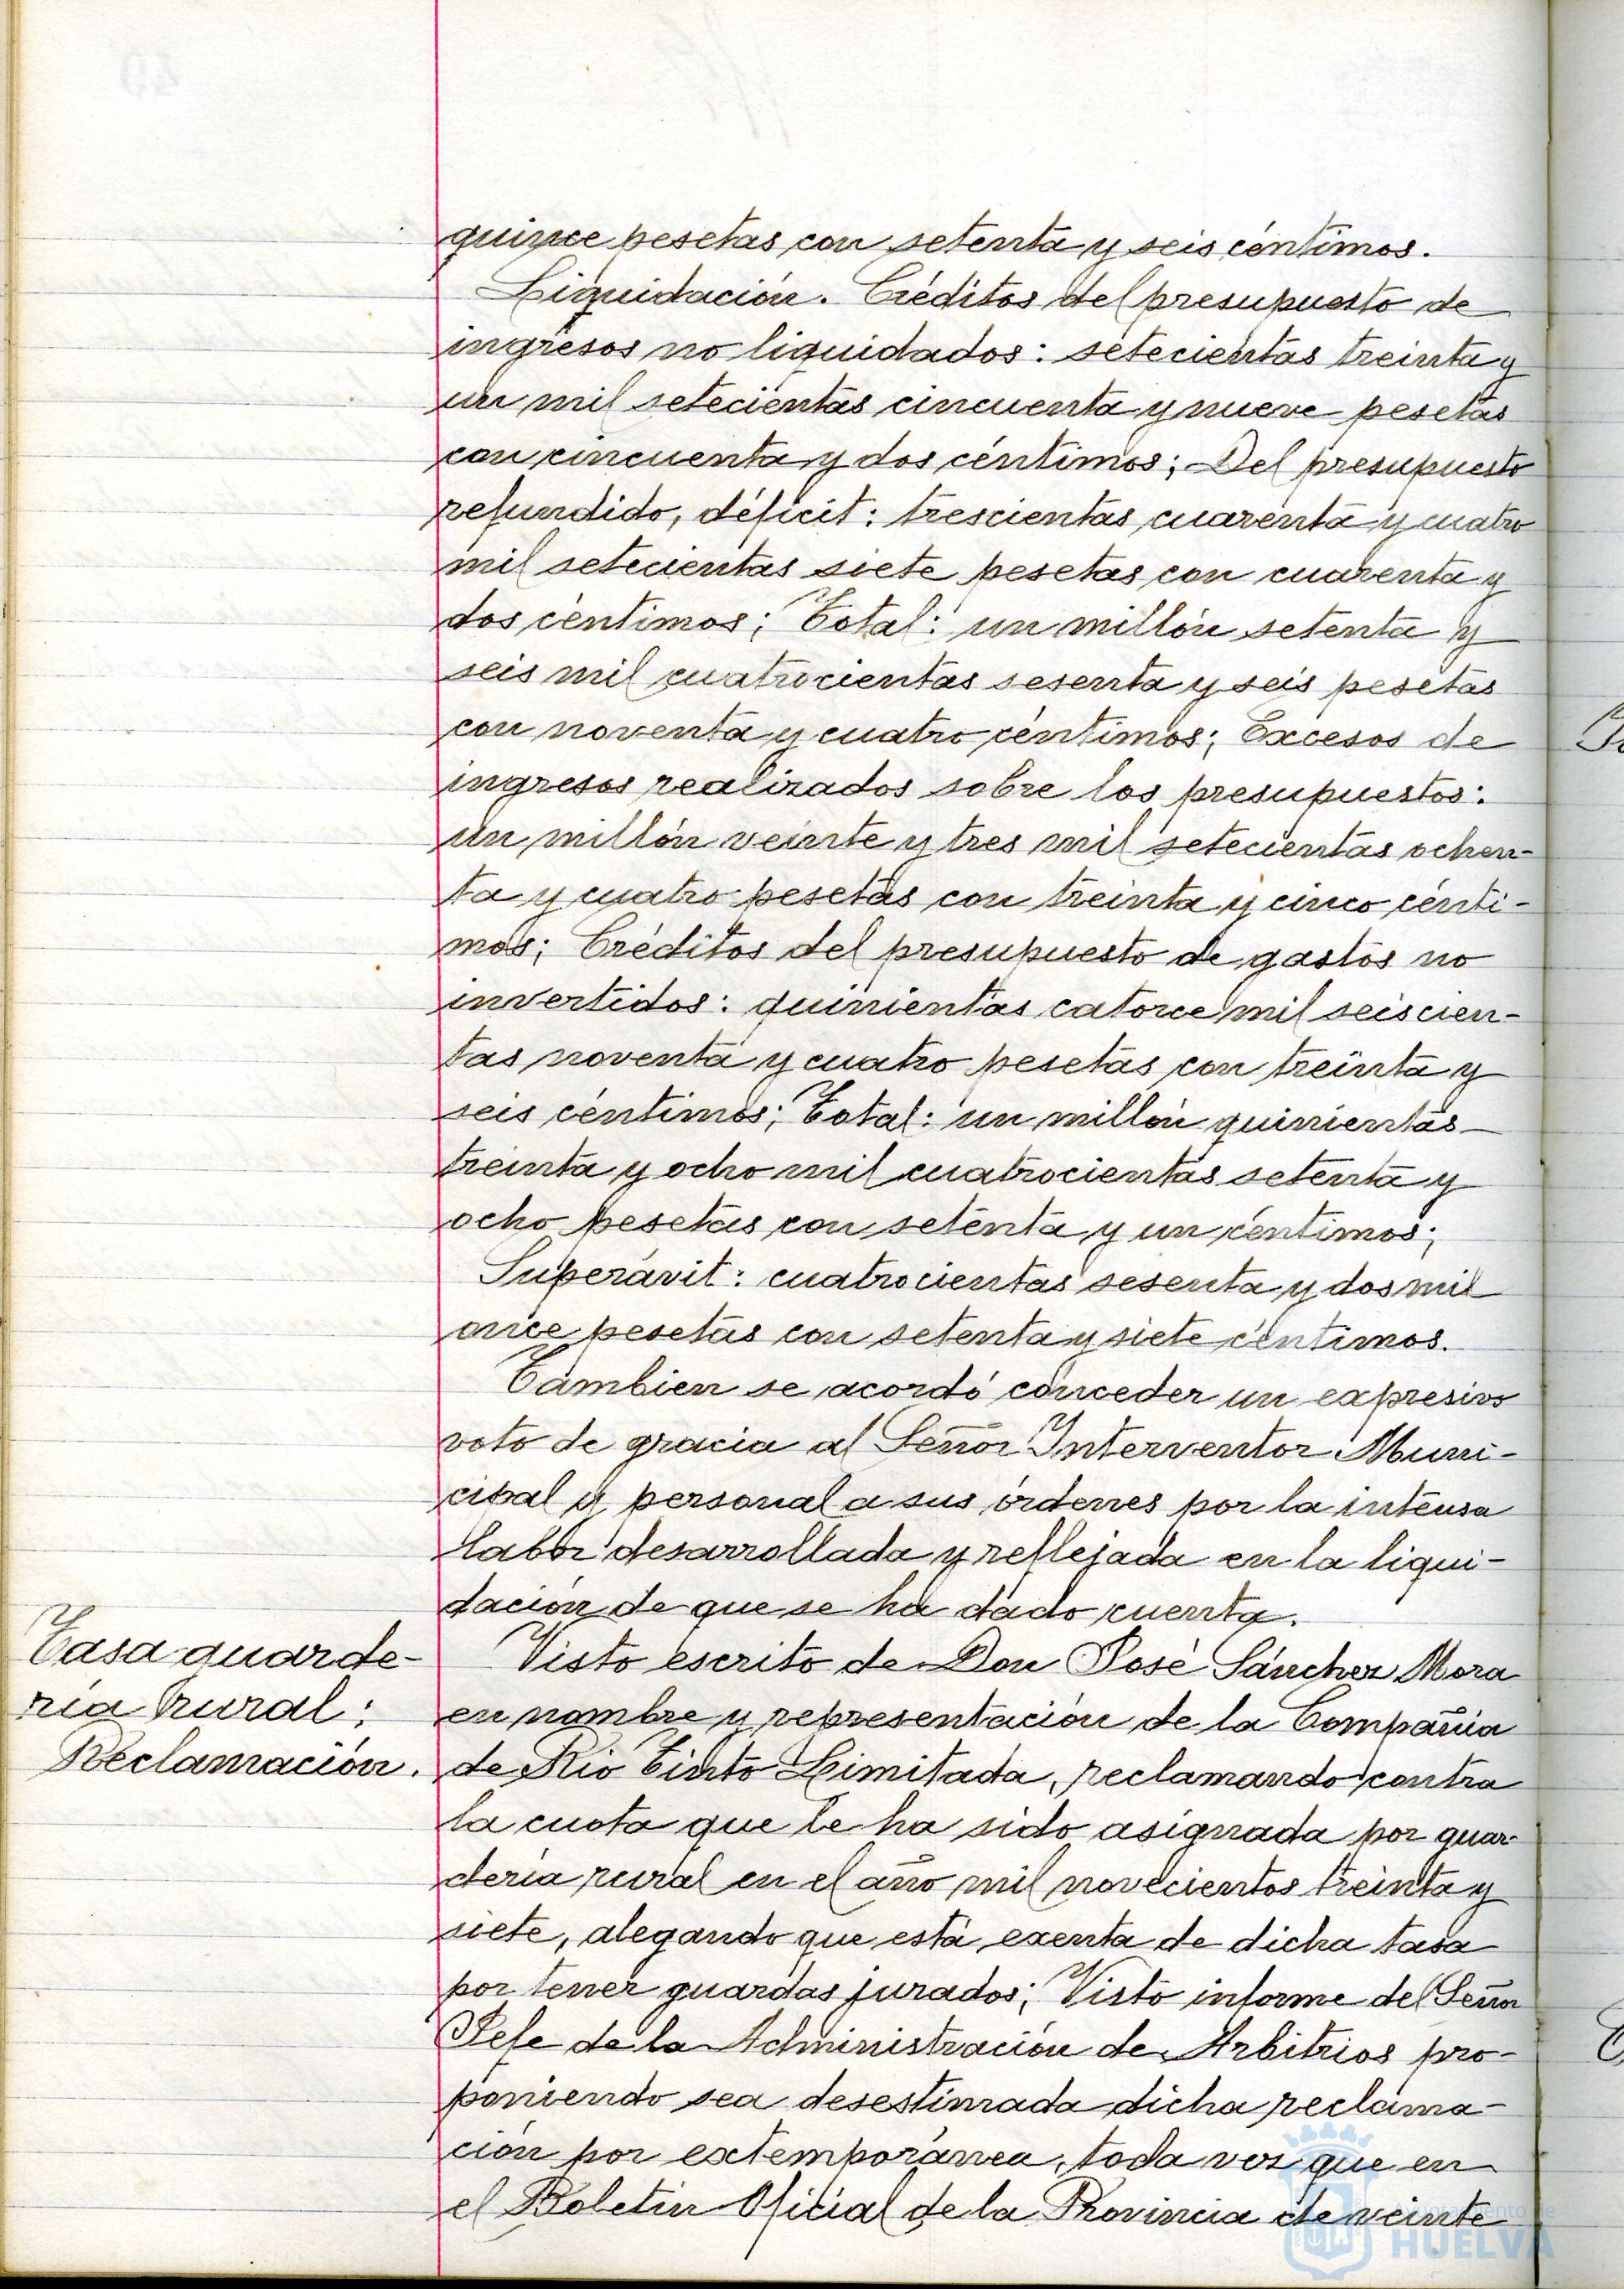 quince pesetas con setenta y seis céntimos.
Liquidación. Créditos del presupuesto de
ingresos no liquidados: setecientas treinta y
un mil setecientas cincuenta y nueve pesetas
con cincuenta y dos céntimos; Del presupuesto
refundido, déficit: trescientas cuarenta y cuatro
mil setecientas siete pesetas con cuarenta y
dos céntimos; Total: un millón setenta y
seis mil cuatrocientas sesenta y seis pesetas
con noventa y cuatro céntimos; Excesos de
ingresos realizados sobre los presupuestos:
un millón veinte y tres mil setecientas ochen-
ta y cuatro pesetas con treinta y cinco cénti-
mos; Créditos del presupuesto de gastos no
invertidos: quinientas catorce mil seiscien-
tas noventa y cuatro pesetas con treinta y
seis céntimos; Total: un millón quinientas
treinta y ocho mil cuatrocientas setenta y
ocho pesetas con setenta y un céntimos;
Superávit: cuatrocientas sesenta y dos mil
once pesetas con setenta y siete céntimos.
Tambien se acordó conceder un expresivo
voto de gracia al Señor Interventor Muni-
cipal y personal a sus órdenes por la intensa
labor desarrollada y reflejada en la liqui-
dación de que se ha dado cuenta.
Tasa guarde-
ría rural:
Reclamación.
Visto escrito de Don José Sánchez Mora
en nombre y representación de la Compañia
de Rio Tinto Limitada, reclamando contra
la cuota que le ha sido asignada por guar-
dería rural en el año mil novecientos treinta y
siete, alegando que está exenta de dicha tasa
por tener guardas jurados; Visto informe del Señor
Jefe de la Administración de Arbitrios pro-
poniendo sea desestimada dicha reclama-
ción por extemporánea, toda vez que en
el Boletin Oficial de la Provincia de veinte
Ayuntamiento de
HUELVA